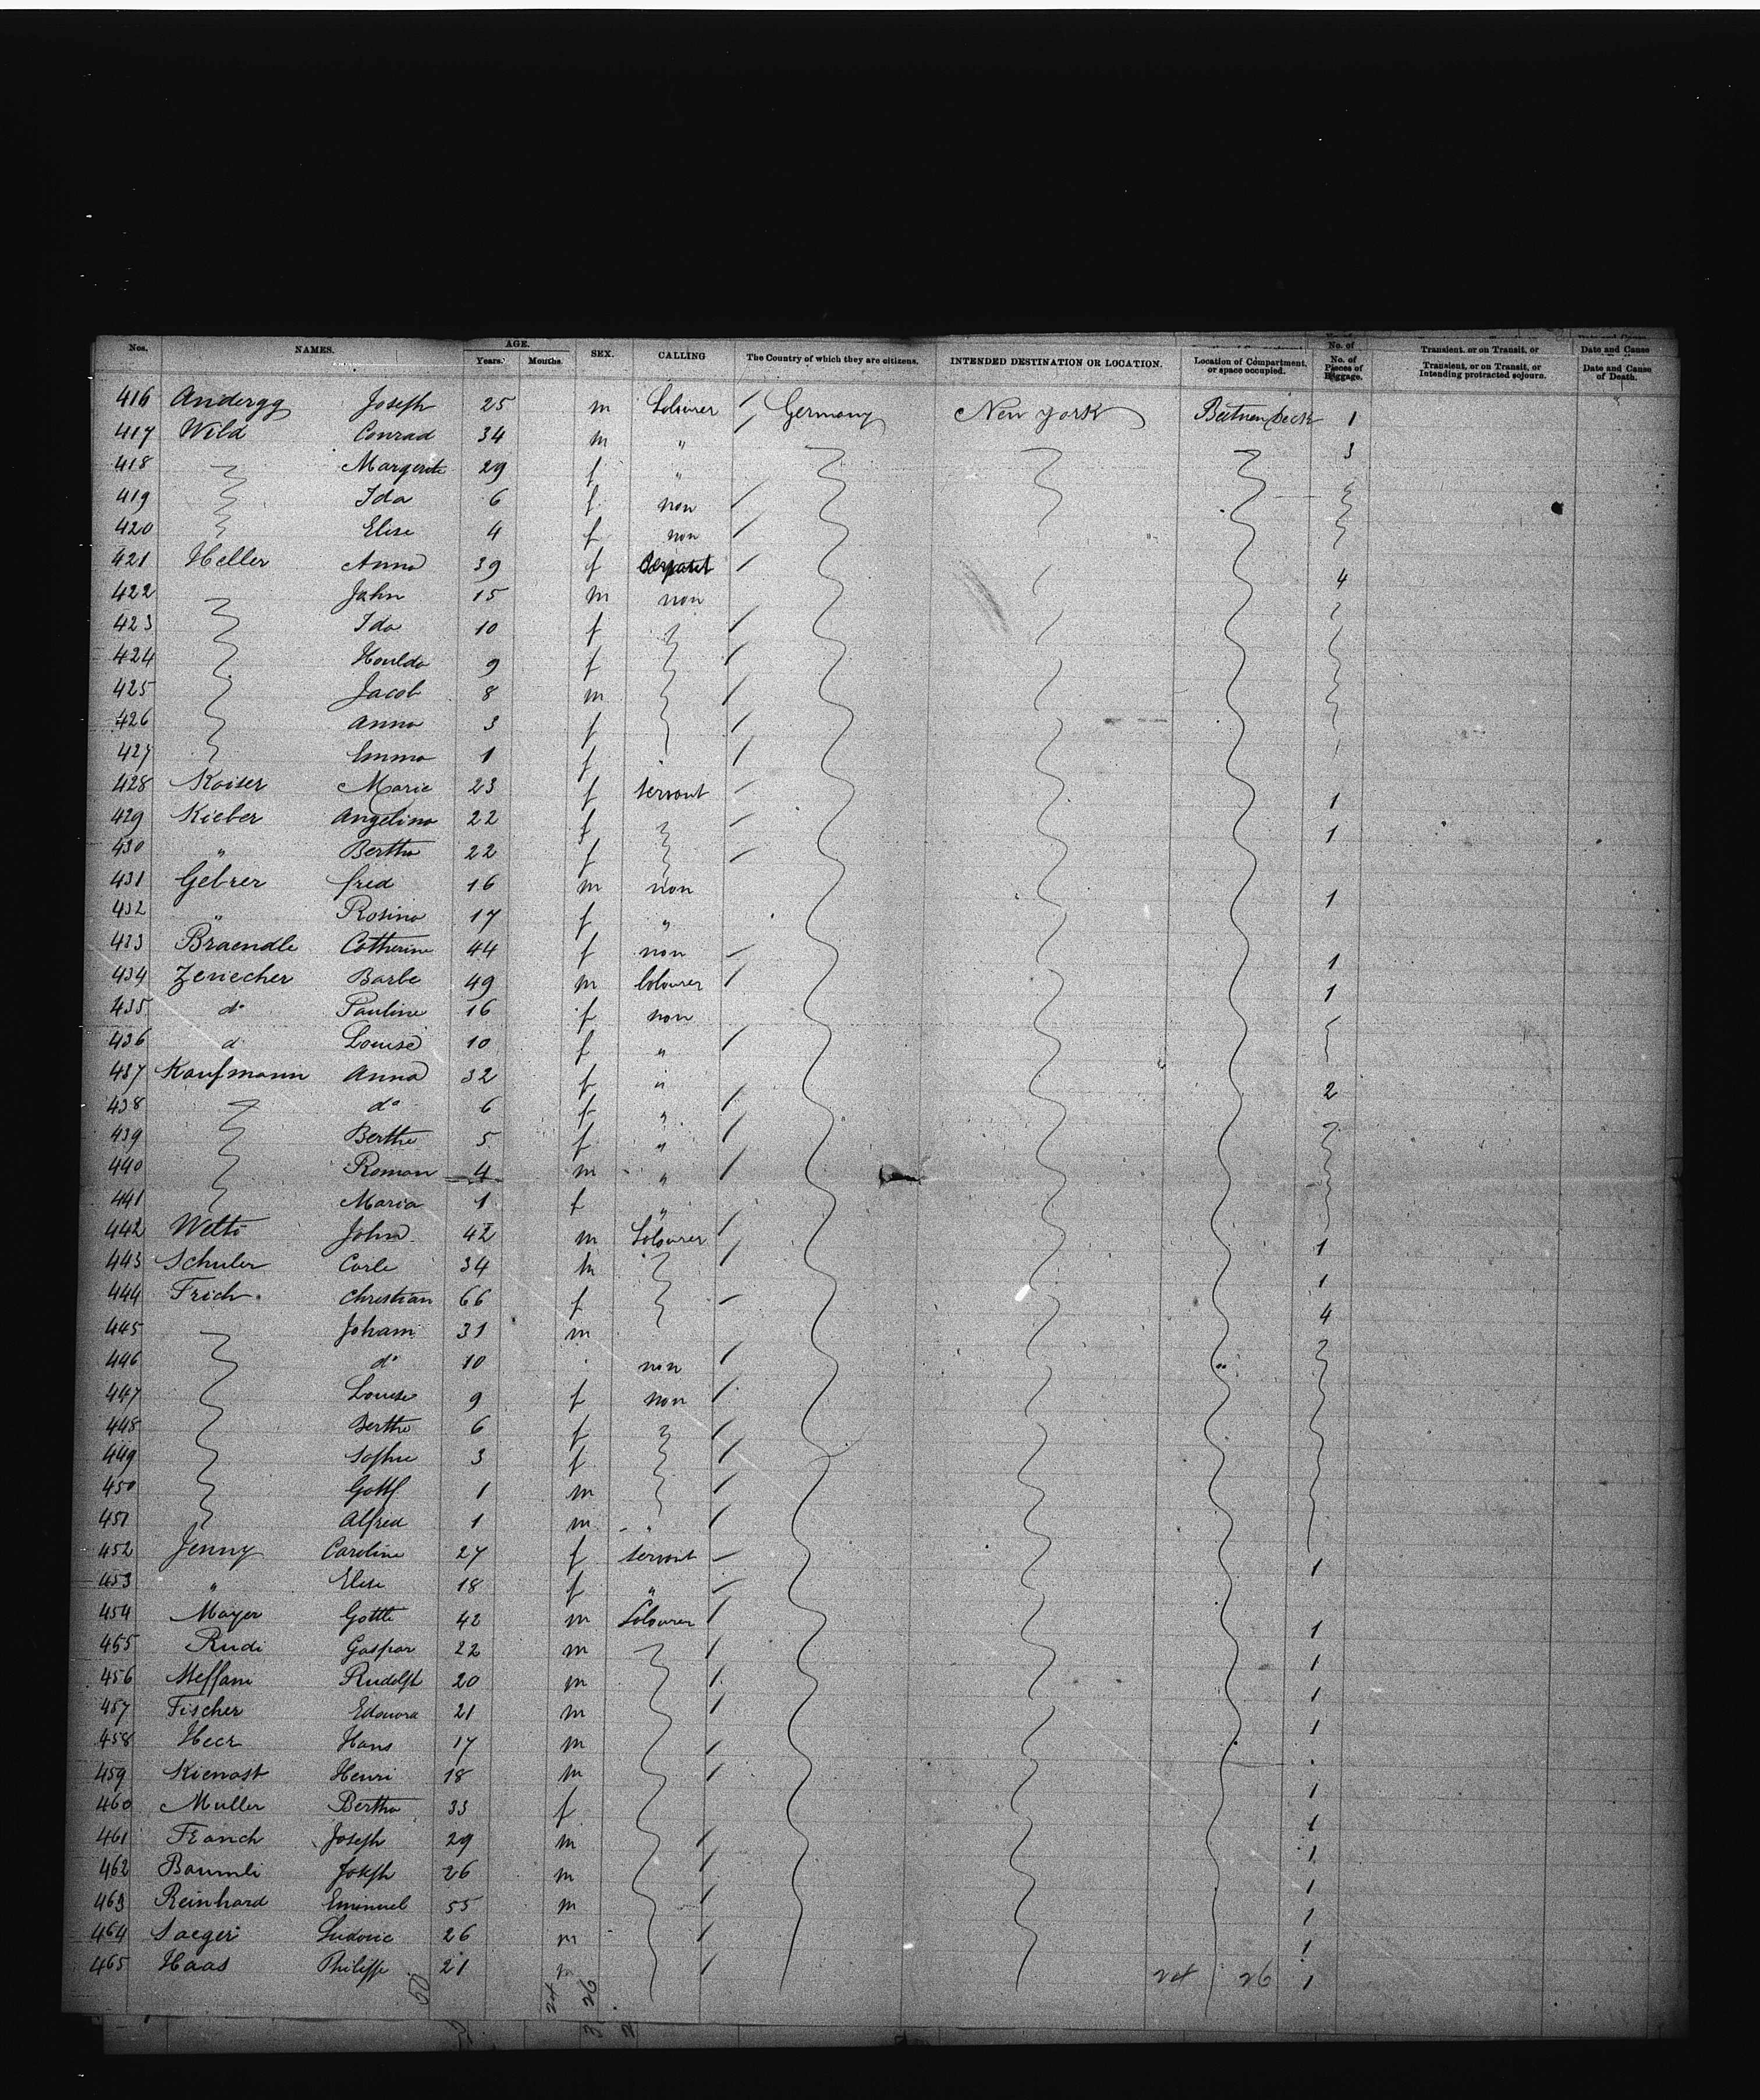 Nos. NAMES. AGE. Years. Months. SEX. CALLING The Country of which they are citizens. INTENDED DESTINATION OR LOCATION. Location of Compartment, or space occupied. No. of Pieces of Baggage. Transient, or on Transit, or Intending protracted sojourn. Date and Cause of Death.
416 Andergg Joseph 25 m Labourer Germany New York Deck 1
417 Wild Conrad 34 m " 3
418 Margerite 29 f "
419 Ida 6 f non
420 Elise 4 f non
421 Heller Anna 39 f 4
422 John 15 m non
423 Ida 10 f
424 Houlda 9 f
425 Jacob 8 m
426 Anna 3 f
427 Emma 1 f
428 Kaiser Marie 23 f servant 1
429 Kieber Angelina 22 f 1
430 " Bertha 22 f
431 Gebrer fred 16 m non 1
432 " Rosina 17 f "
433 Braendle Catherine 44 f non 1
434 Zeriecher Barbe 49 m labourer 1
435 do Pauline 16 f non
436 d Louise 10 f "
437 Kaufmann Anna 32 f " 2
438 do 6 f "
439 Bertha 5 f "
440 Roman 4 m "
441 Maria 1 f "
442 Welti John 42 m Labourer 1
443 Schuler Carle 34 m 1
444 Frich Christian 66 f 4
445 Johann 31 m
446 do 10 non
447 Louise 9 f non
448 Bertha 6 f
449 Sophie 3 f
450 Gottl 1 m
451 Alfred 1 m "
452 Jenny Caroline 27 f servant 1
453 " Elise 18 f "
454 Mayer Gottli 42 m Labourer 1
455 Rudi Gaspar 22 m 1
456 Steffani Rudolph 20 m 1
457 Fischer Edouard 21 m 1
458 Heer Hans 17 m
459 Kienast Henri 18 m 1
460 Muller Bertha 33 f 1
461 Franch Joseph 29 m 1
462 Baumli Joseph 26 m 1
463 Reinhard Eminuel 55 m 1
464 Saeger Ludovic 26 m 1
465 Haas Philippe 21 m 1
50 24 26 24 26